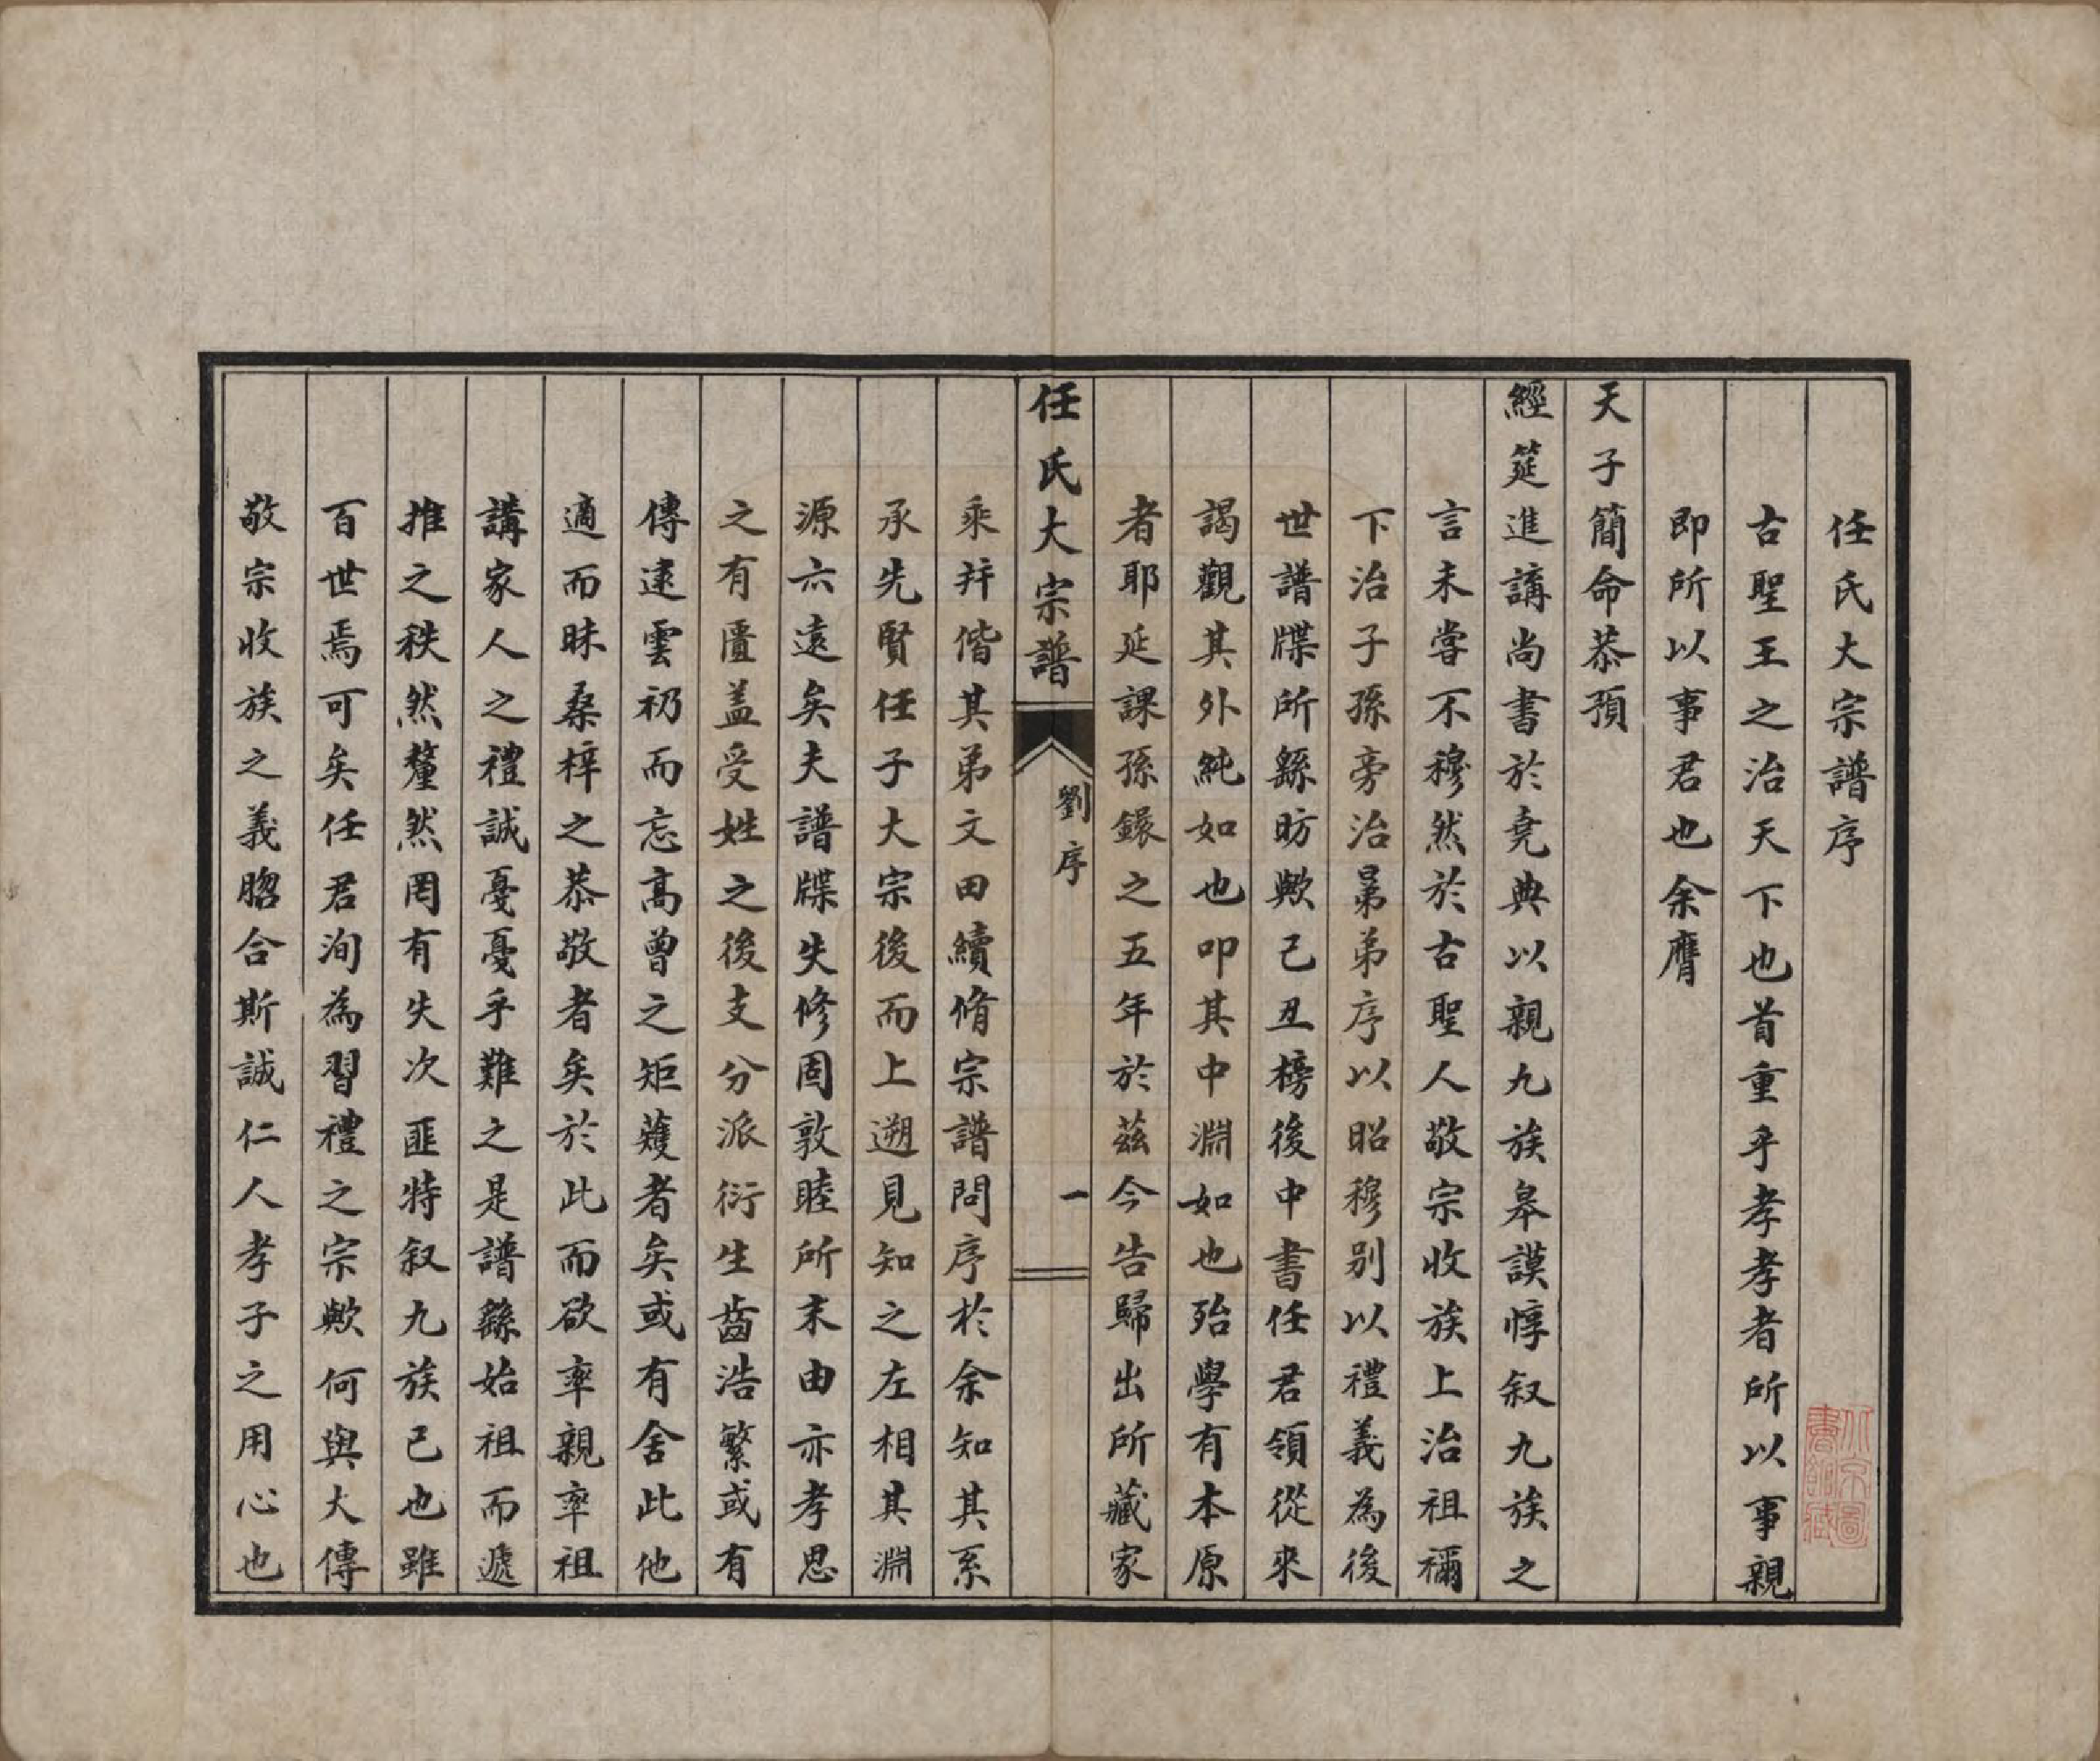 任氏大宗譜序
古聖王之治天下也首重乎孝孝者所以事親
即所以事君也余膺
天子簡命恭預
經筵進講尚書於堯典以親九族皋謨惇叙九族之
言未嘗不穆然於古聖人敬宗收族上治祖禰
下治子孫旁治晜弟序以昭穆別以禮義為後
世譜牒所繇昉歟己丑榜後中書任君領從來
謁觀其外純如也叩其中淵如也殆學有本原
者耶延課孫鐩之五年於茲今告歸出所藏家
任氏大宗譜
劉序
一
乘并偕其弟文田續脩宗譜問序於余知其系
承先賢任子大宗後而上遡見知之左相其淵
源六遠矣夫譜牒失修固敦睦所末由亦孝思
之有匱盖受姓之後支分派衍生齒浩繁或有
傳逮雲礽而忘高曾之矩蒦者矣或有舍此他
適而昧桑梓之恭敬者矣於此而欲率親率祖
講家人之禮誠戞戞乎難之是譜繇始祖而遞
推之秩然釐然罔有失次匪特叙九族已也雖
百世焉可矣任君洵為習禮之宗歟何與大傳
敬宗收族之義脗合斯誠仁人孝子之用心也
北京圖
書館藏